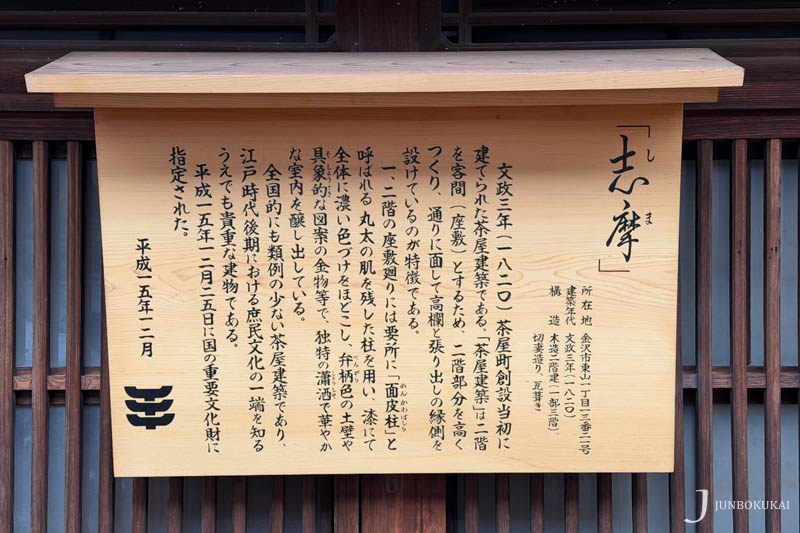 「志摩」
しま
所在地 金沢市東山一丁目一三番二一号
建築年代 文政三年(一八二〇)
構造 木造二階建(一部三階)、
切妻造り、瓦葺き
文政三年(一八二〇)茶屋町創設当初に
建てられた茶屋建築である。「茶屋建築」は二階
を客間(座敷)とするため、二階部分を高く
つくり、通りに面して高欄と張り出しの縁側を
設けているのが特徴である。
一、二階の座敷廻りには要所に「面皮柱」と
めんかわばしら
呼ばれる丸太の肌を残した柱を用い、漆にて
全体に濃い色づけをほどこし、弁柄色の土壁や
べんがら
具象的な図案の金物等で、独特の瀟洒で華やか
ぐしょうてき
しょうしゃ
な室内を醸し出している。
全国的にも類例の少ない茶屋建築であり、
江戸時代後期における庶民文化の一端を知る
うえでも貴重な建物である。
平成一五年一二月二五日に国の重要文化財に
指定された。
平成一五年一二月
JUNBOKUKAI